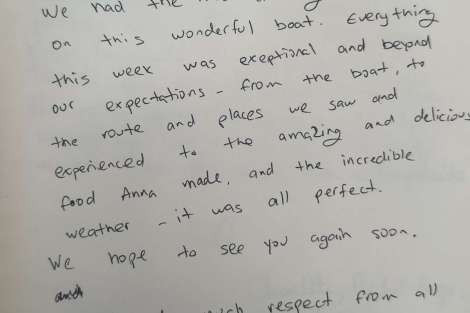 We had the
on this wonderful boat. Everything
this week was exeptional and beyond
our expectations - from the boat, to
the route and places we saw and
experienced to the amazing and delicious
food Anna made, and the incredible
weather - it was all perfect.
We hope to see you again soon.
respect from all